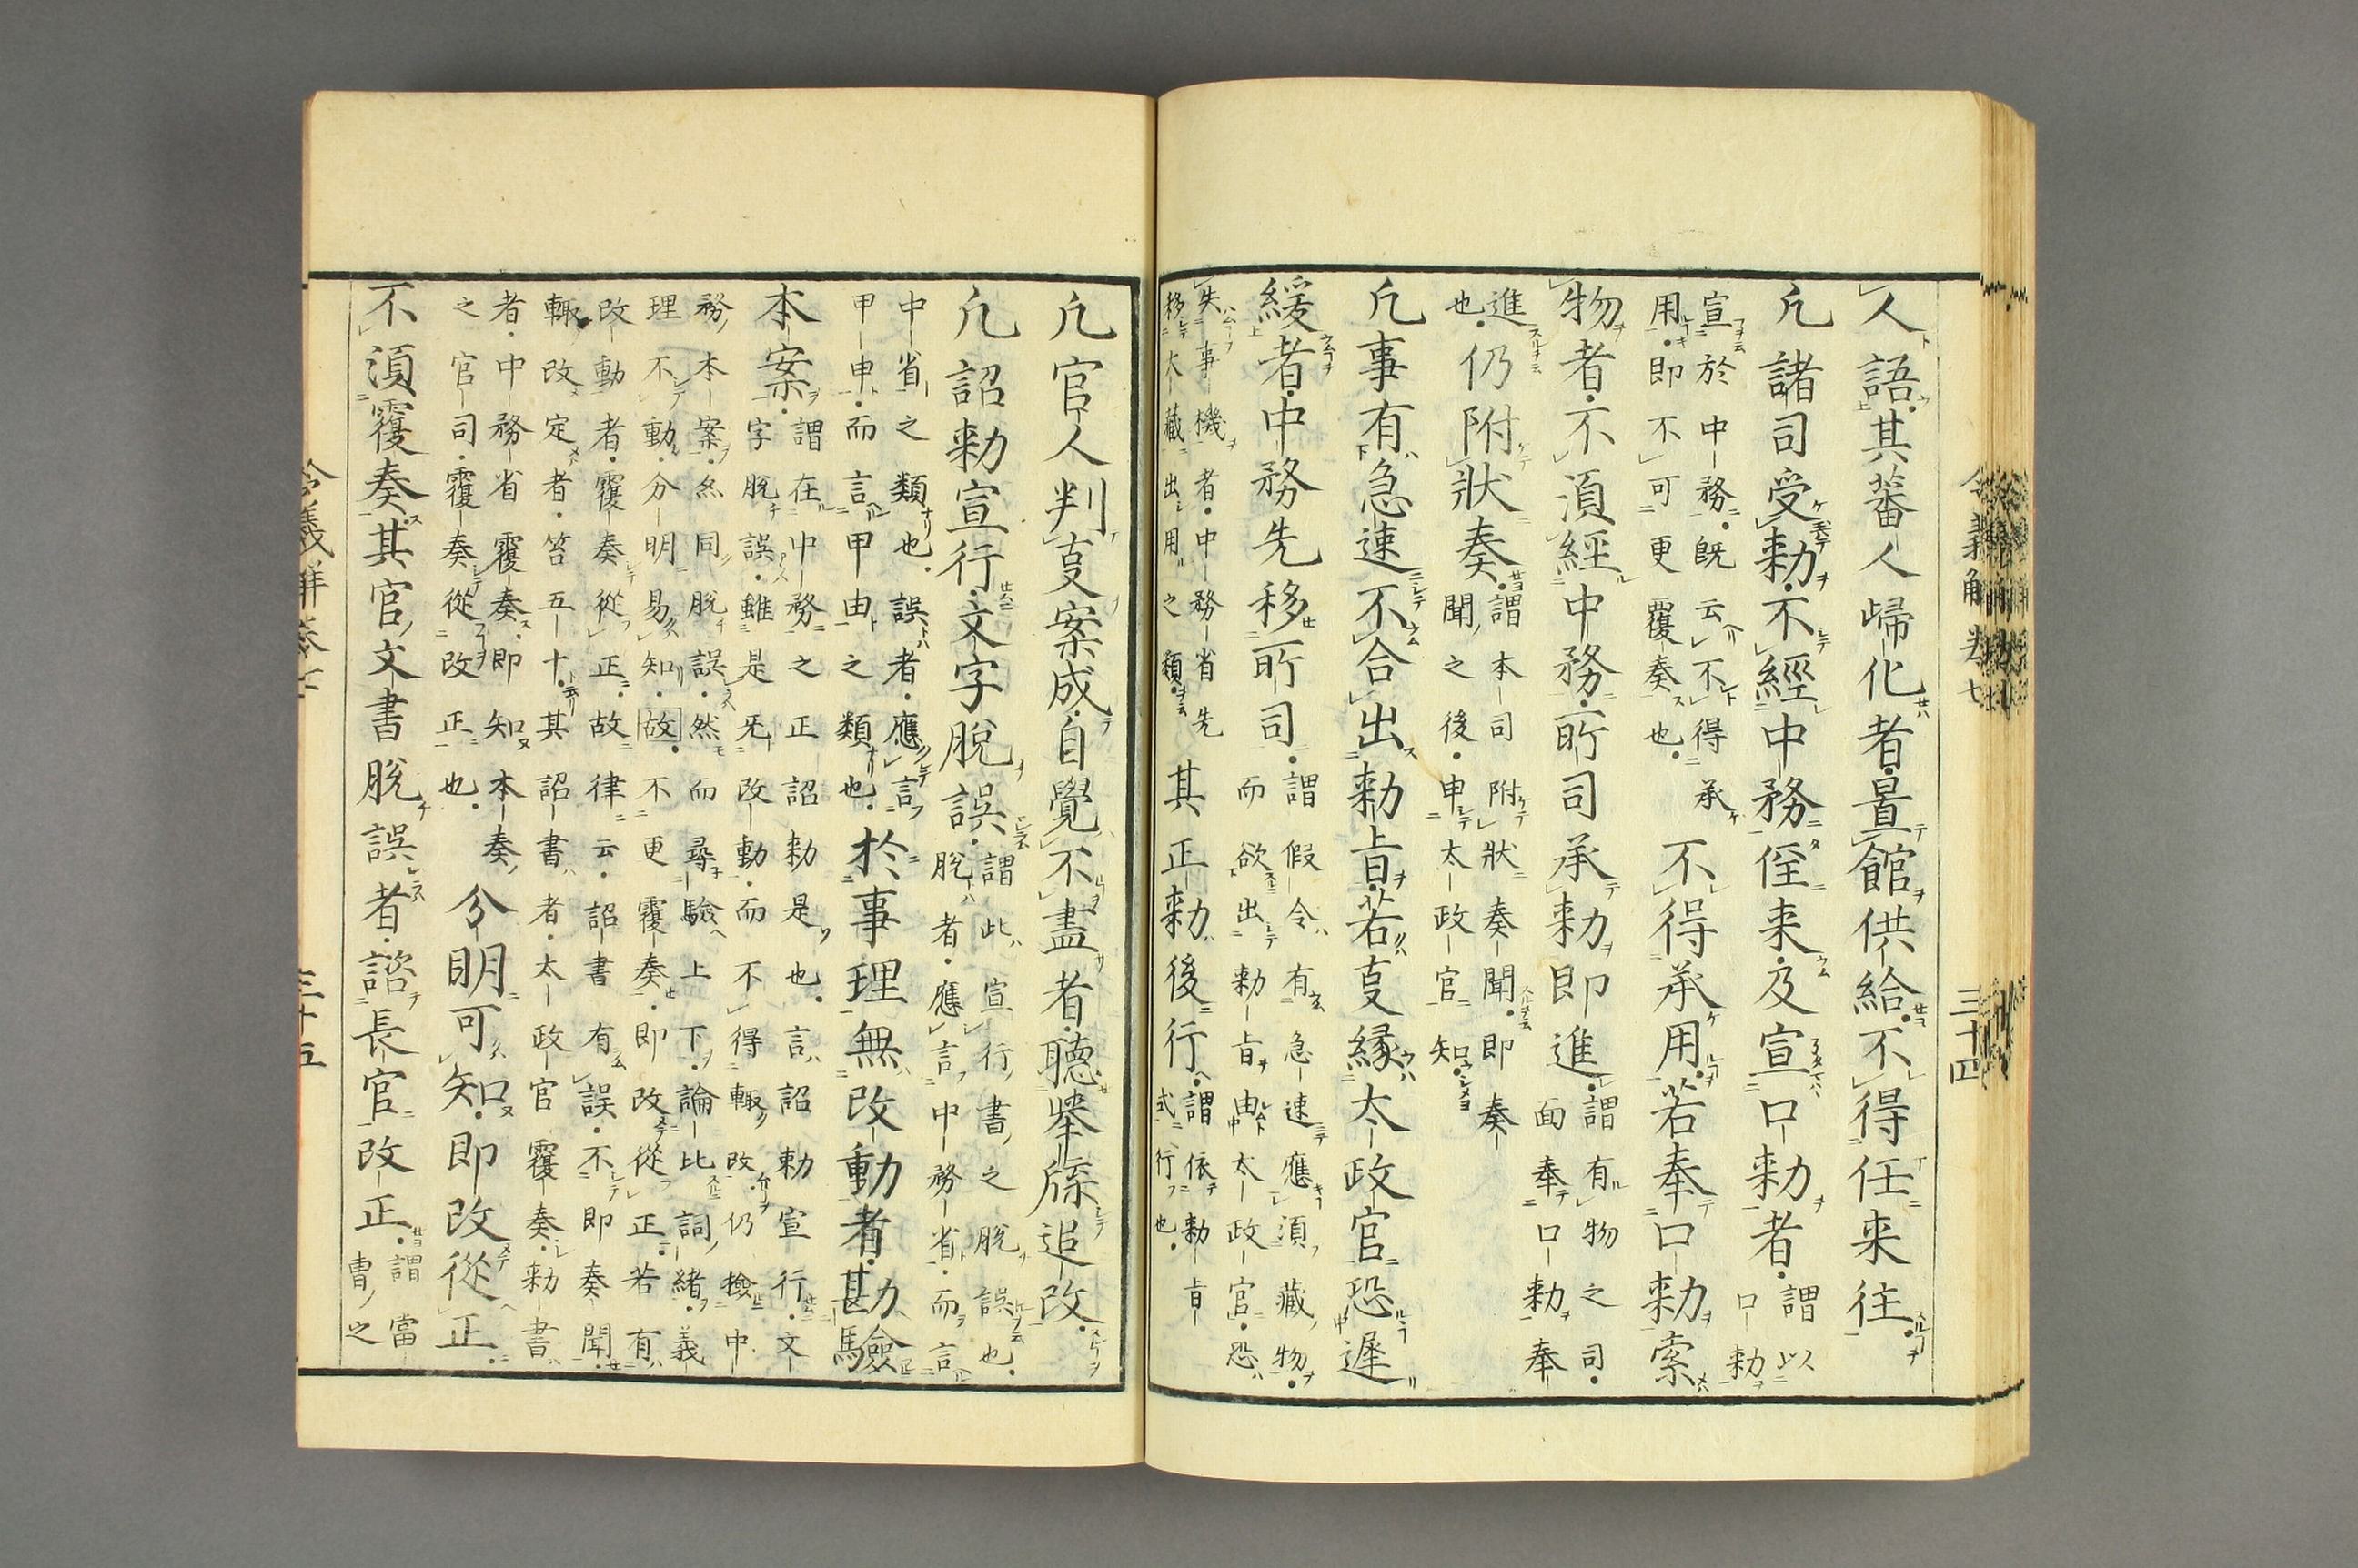 人語其蕃人歸化者置館供給不得任来往
凢諸司受勅不經中務俓来及宣口勅者謂以口勅
宣於中務既云不得承
用即不可更覆奏也不得承用若奉口勅索
物者不須經中務所司承勅即進謂有物之司面奉口勅奉
進仍附狀奏謂本司附狀奏聞即奏
也聞之後申太政官知
凢事有急速不合出勅旨若㕝縁太政官恐遲
緩者中務先移所司謂假令有急速應須藏物而欲出勅旨由太政官恐
失事機者中務省先
移大藏出用之類其正勅後行謂依勅旨式行也
令義解卷七
三十四
凢官人判㕝案成自覺不盡者聽擧牒追改
凢詔勅宣行文字脫誤謂此宣行書之脫誤也脫者應言中務省而言
中省之類也誤者應言
甲申而言甲由之類也於事理無改動者勘驗
本案謂在中務之正詔勅是也言詔勅宣行文
字脫誤雖是旡改動而不得輙改仍撿中
務本案然同脫誤然而尋驗上下論比詞緒義
理不動分明易知故不更覆奏即改從正若有
改動者覆奏從正故律云詔書有誤不即奏聞
輙改定者笞五十其詔書者太政官覆奏勅書
者中務省覆奏即知本奏
之官司覆奏從改正也分明可知即改從正
不須覆奏其官文書脫誤者諮長官改正謂當曹之
三十五